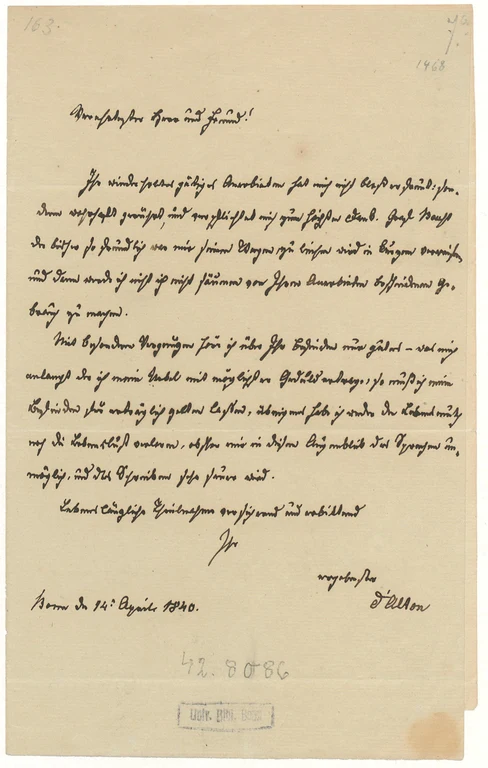 163.
7.
1468
Verehrtester Herr und Freund!
Ihr wiederholtes gütiges Anerbieten hat mich nicht bloß erfreut: son-
dern wahrhaft gerührt, und verpflichtet mich zum höchsten Dank. Graf
der bisher so freundlich war mir seinen Wagen zu leihen wird in kurzem verreisen
und dann werde ich nicht ich nicht säumen von Ihrem Anerbieten bescheidenen Ge-
brauch zu machen.
Mit besonderem Vergnügen höre ich über Ihr Befinden nur gutes – was mich
anlangt der ich mein Uebel mit möglichster Geduld ertrage, so muß ich mein
Befinden für erträglich gelten lassen, übrigens habe ich weder den Lebensmuth
noch die Lebenslust verloren, obschon mir in diesem Augenblick das Sprechen un-
möglich, und das Schreiben sehr sauer wird.
Lebenslängliche Theilnahme versichernd und erbittend
Ihr
ergebenster
d'Alton
Bonn den 14. Aprile 1840.
42.8086
Univ. Bibl. Bonn